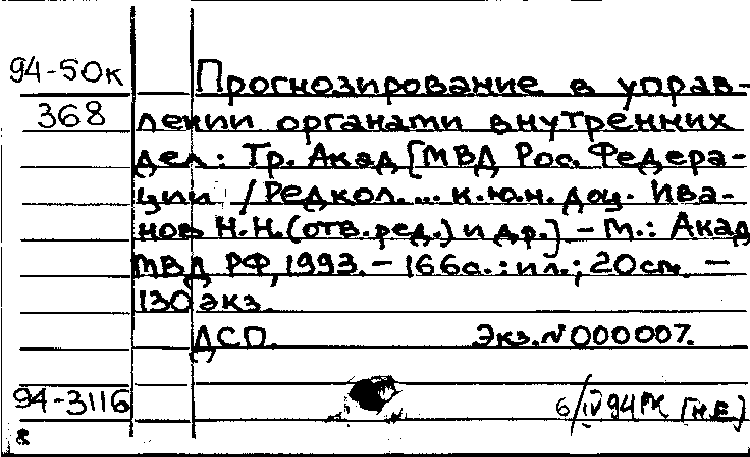 94-50к
368
Прогнозирование в управ-
лении органами внутренних
дел: Тр. Акад [МВД Рос. Федера-
ции / Редкол. ... к.ю.н. доц. Ива-
нов Н.Н. (отв. ред.) и др.] – М.: Акад
МВД РФ, 1993. – 166с.: ил.; 20см. –
130 экз.
ДСП. Экз. № 000007.
94-3116
6/IV 94 РК [н.Е]